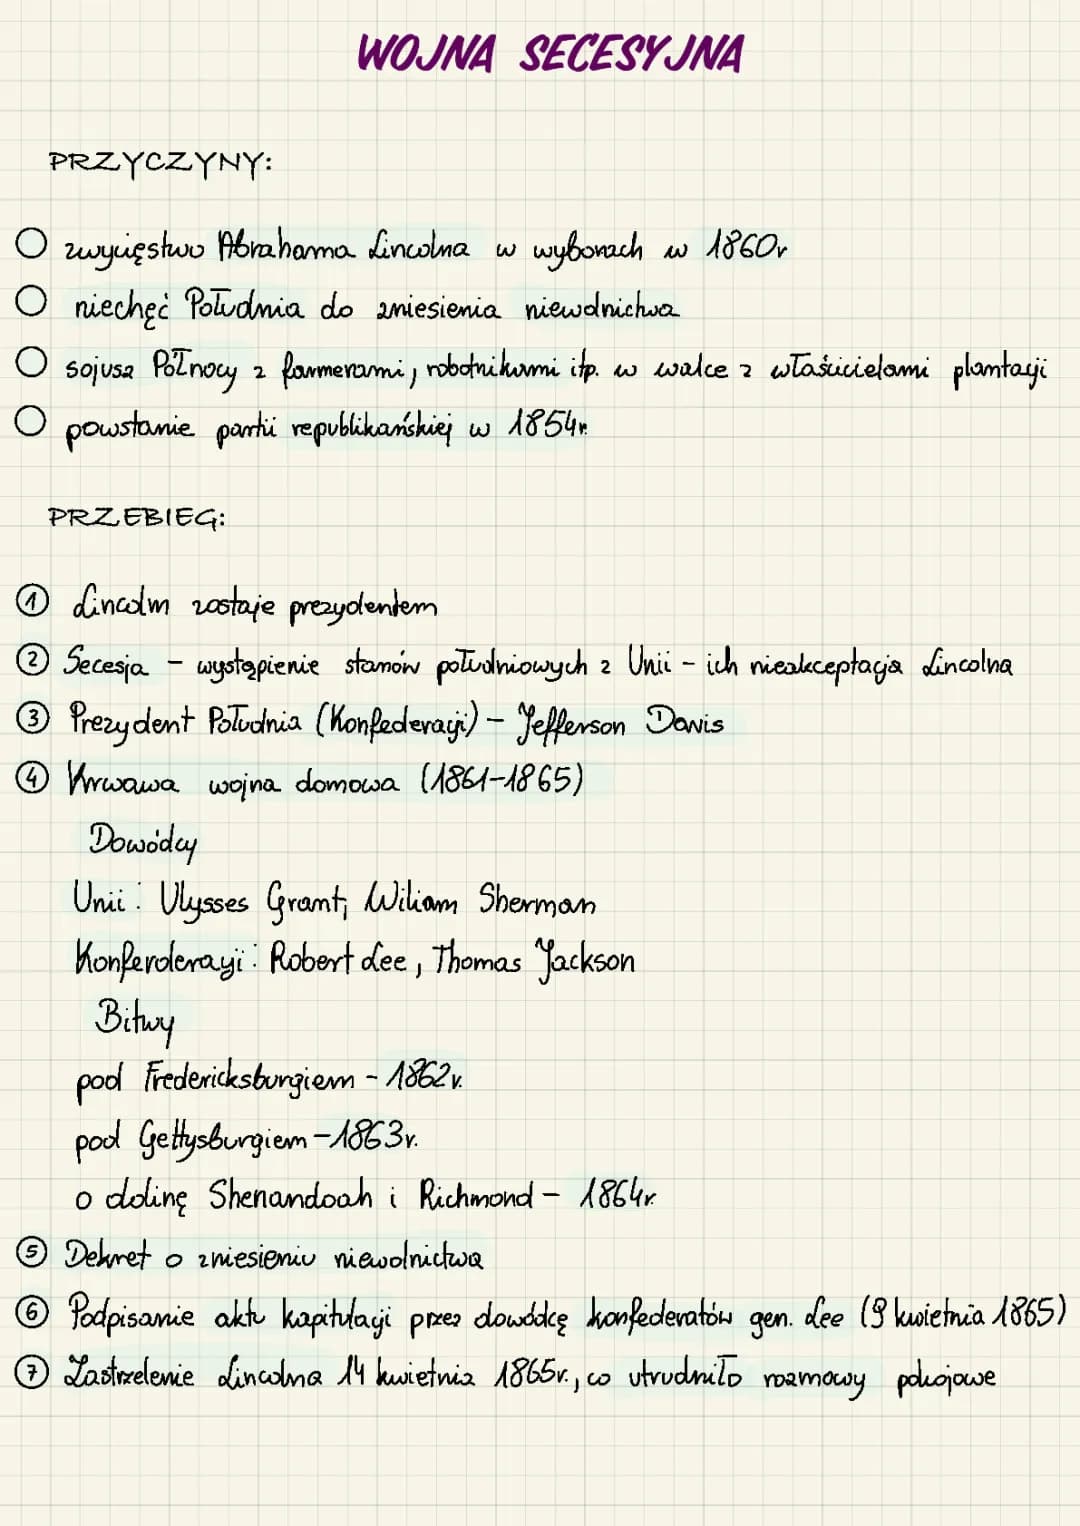 WOJNA SECESYJNA
PRZYCZYNY:
zwycięstwo Abrahama Lincolna w wyborach w 1860r
niechęć Południa do zniesienia niewolnictwa
sojusz Północy z farmerami, robotnikami itp. w walce z właścicielami plantacji
powstanie partii republikańskiej w 1854r.
PRZEBIEG:
① Lincoln zostaje prezydentem
② Secesja – wystąpienie stanów południowych z Unii – ich nieakceptacja Lincolna
③ Prezydent Południa (Konfederacji) – Jefferson Davis
④ Krwawa wojna domowa (1861-1865)
Dowódcy
Unii: Ulysses Grant, Wiliam Sherman
Konferderacji: Robert Lee, Thomas Jackson
Bitwy
pod Fredericksburgiem - 1862r.
pod Gettysburgiem - 1863r.
o dolinę Shenandoah i Richmond – 1864r.
⑤ Dekret o zniesieniu niewolnictwa
⑥ Podpisanie aktu kapitulacji przez dowódcę konfederatów gen. Lee (9 kwietnia 1865)
⑦ Zastrzelenie Lincolna 14 kwietnia 1865r., co utrudniło rozmowy pokojowe